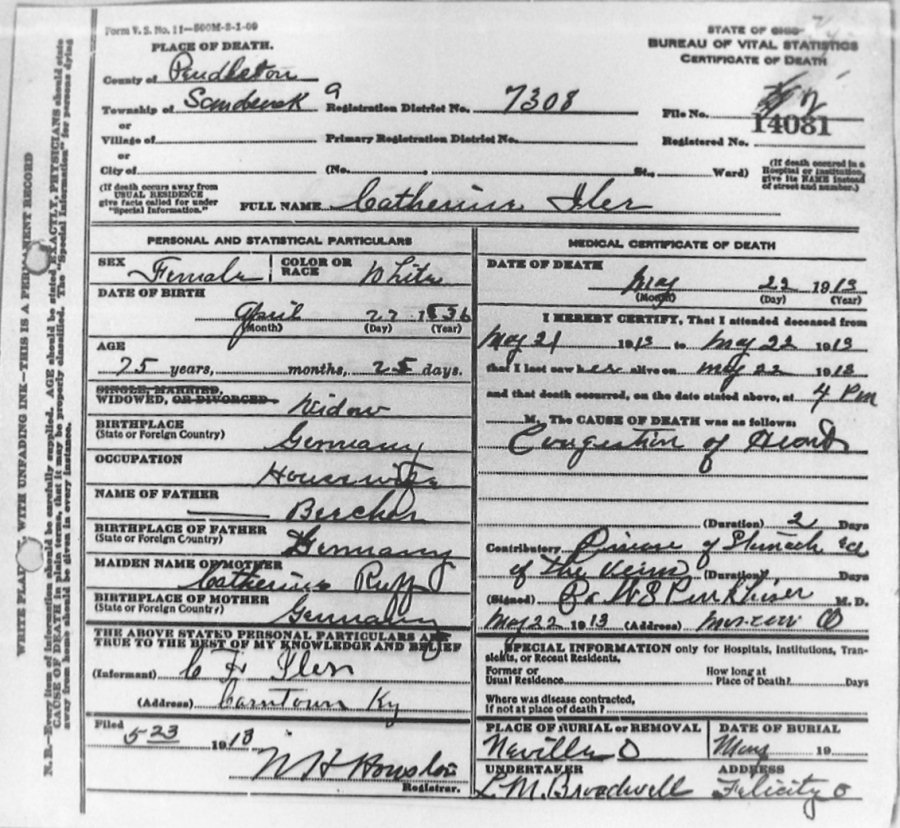 Form V. S. No. 11—500M-3-1-09
STATE OF OHIO
BUREAU OF VITAL STATISTICS
CERTIFICATE OF DEATH
PLACE OF DEATH.
County of Pendleton
Township of
Registration District No. 7308
File No.
14081
or
Village of
Primary Registration District No.
Registered No.
or
City of (No. St., Ward)
(If death occured in a
Hospital or institution,
give its NAME instead
of street and number.)
(If death occurs away from
USUAL RESIDENCE
give facts called for under
"Special Information.")
FULL NAME Catherine Iler
PERSONAL AND STATISTICAL PARTICULARS
SEX Female
COLOR OR
RACE White
DATE OF BIRTH
April 27 1836
(Month) (Day) (Year)
AGE
75 years, months, 25 days.
SINGLE, MARRIED,
WIDOWED, OR DIVORCED Widow
BIRTHPLACE
(State or Foreign Country) Germany
OCCUPATION
Housewife
NAME OF FATHER
Bercher
BIRTHPLACE OF FATHER
(State or Foreign Country) Germany
MAIDEN NAME OF MOTHER
Catherine Ruff
BIRTHPLACE OF MOTHER
(State or Foreign Country) Germany
THE ABOVE STATED PERSONAL PARTICULARS ARE
TRUE TO THE BEST OF MY KNOWLEDGE AND BELIEF
(Informant) C F Iler
(Address) Carntown Ky
Filed
5 23 1913
Registrar.
MEDICAL CERTIFICATE OF DEATH
DATE OF DEATH
May 22 1913
(Month) (Day) (Year)
I HEREBY CERTIFY, That I attended deceased from
May 21 1913 to May 22 1913
that I last saw her alive on May 22 1913
and that death occurred, on the date stated above, at 4 Pm
M. The CAUSE OF DEATH was as follows:
Congestion of
(Duration) 2 Days
Contributory Disease of Stomach
of the (Duration) Days
(Signed) M. D.
May 22 1913 (Address) Moscow O
SPECIAL INFORMATION only for Hospitals, Institutions, Tran-
sients, or Recent Residents.
Former or
Usual Residence
How long at
Place of Death? Days
Where was disease contracted,
if not at place of death?
PLACE OF BURIAL or REMOVAL
Neville O
DATE OF BURIAL
19
UNDERTAKER
L. M. Broadwell
ADDRESS
Felicity O
WRITE PLAINLY, WITH UNFADING INK—THIS IS A PERMANENT RECORD
N. B.—Every item of information should be carefully supplied. AGE should be stated EXACTLY, PHYSICIANS should state
CAUSE OF DEATH in plain terms, that it may be properly classified. The "Special Information" for persons dying
away from home should be given in every instance.